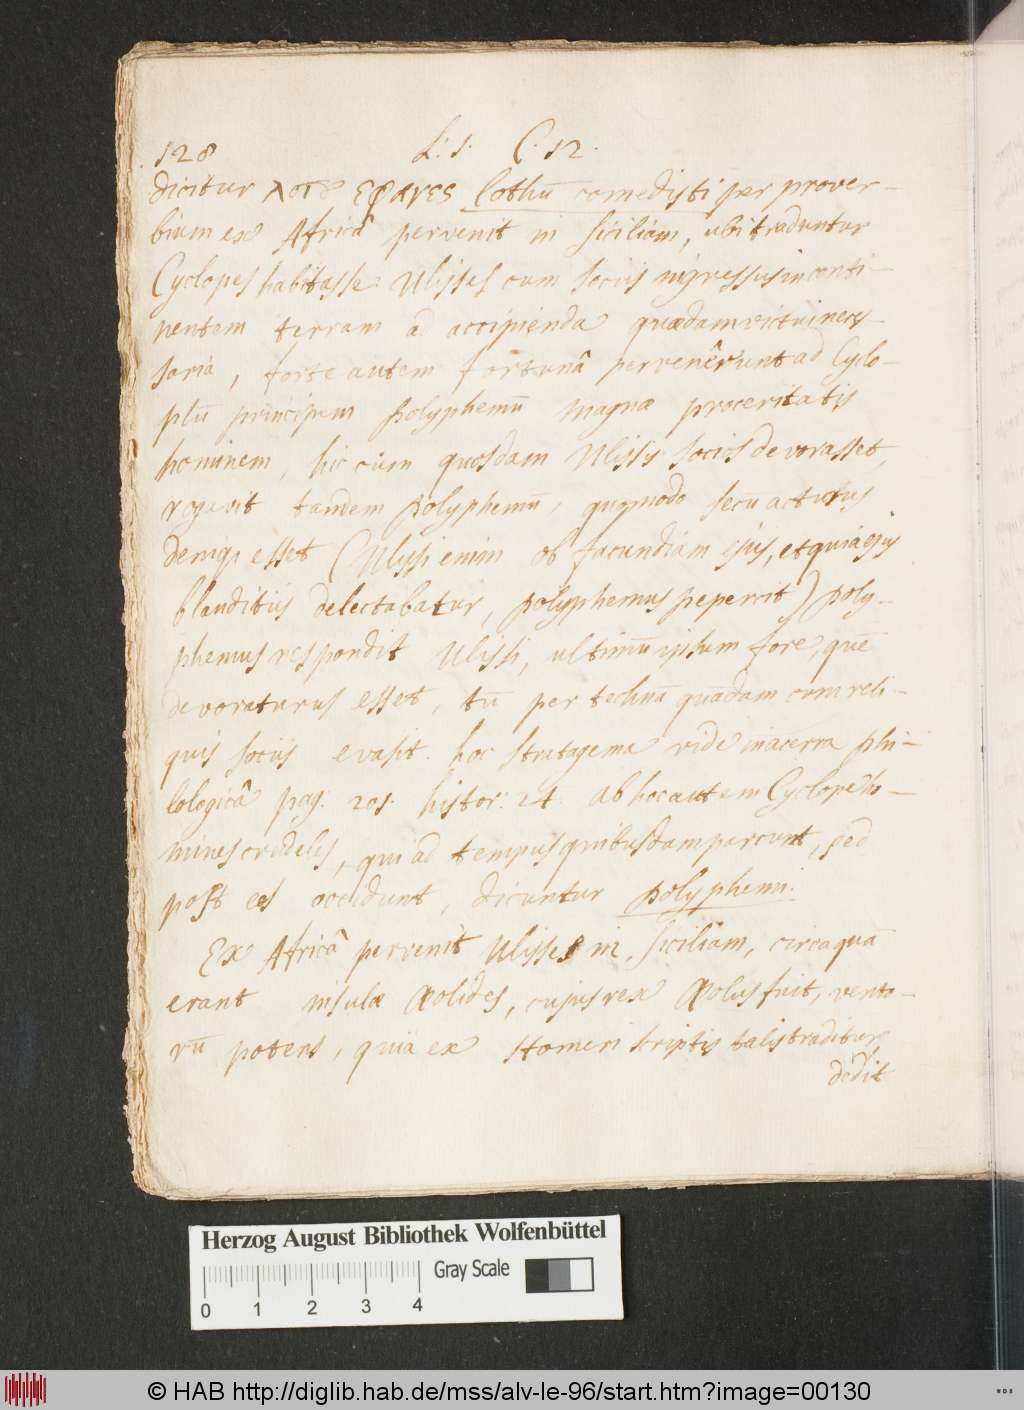 128 L: 1. C. 12.
dicitur λοτȣ ἔφαγες Lothū comedisti per prover-
bium ex Africâ pervenit in Siciliam, ubi traduntur
Cyclopes habitasse. Ulisses cum sociis ingressus in conti-
nentem terram ad accipienda quædam victui neces-
saria, forte autem fortunâ pervenêrunt ad Cyclo-
pū principem Polyphemū magnæ proceritatis
hominem, hic cum quosdam Ulissis socios devorasset,
rogavit tandem Polyphemū, quomodo secū acturus
deniq; esset (Ulissi enim ob facundiam ejus, et quia ejus
blanditiis delectabatur, Polyphemus pepercit) Poly-
phemus respondit Ulissi, ultimū ipsum fore, quē
devoraturus esset, tū per technā quādam cum reli-
quis sociis evasit. hoc stratagema vide in acerra phi-
lologicâ pag. 201. histor: 24. Ab hoc autem Cyclope ho-
mines crudeles, qui ad tempus quibusdam parcunt, sed
post eos occidunt, dicuntur Polyphemi.
Ex Africâ pervenit Ulisses in Siciliam, circa quā
erant insulæ Æolides, cujus rex Æolus fuit, vento-
rū potens, quia ex Homeri scriptis talis traditur,
dedit
Herzog August Bibliothek Wolfenbüttel
Gray Scale
0 1 2 3 4
© HAB http://diglib.hab.de/mss/alv-le-96/start.htm?image=00130